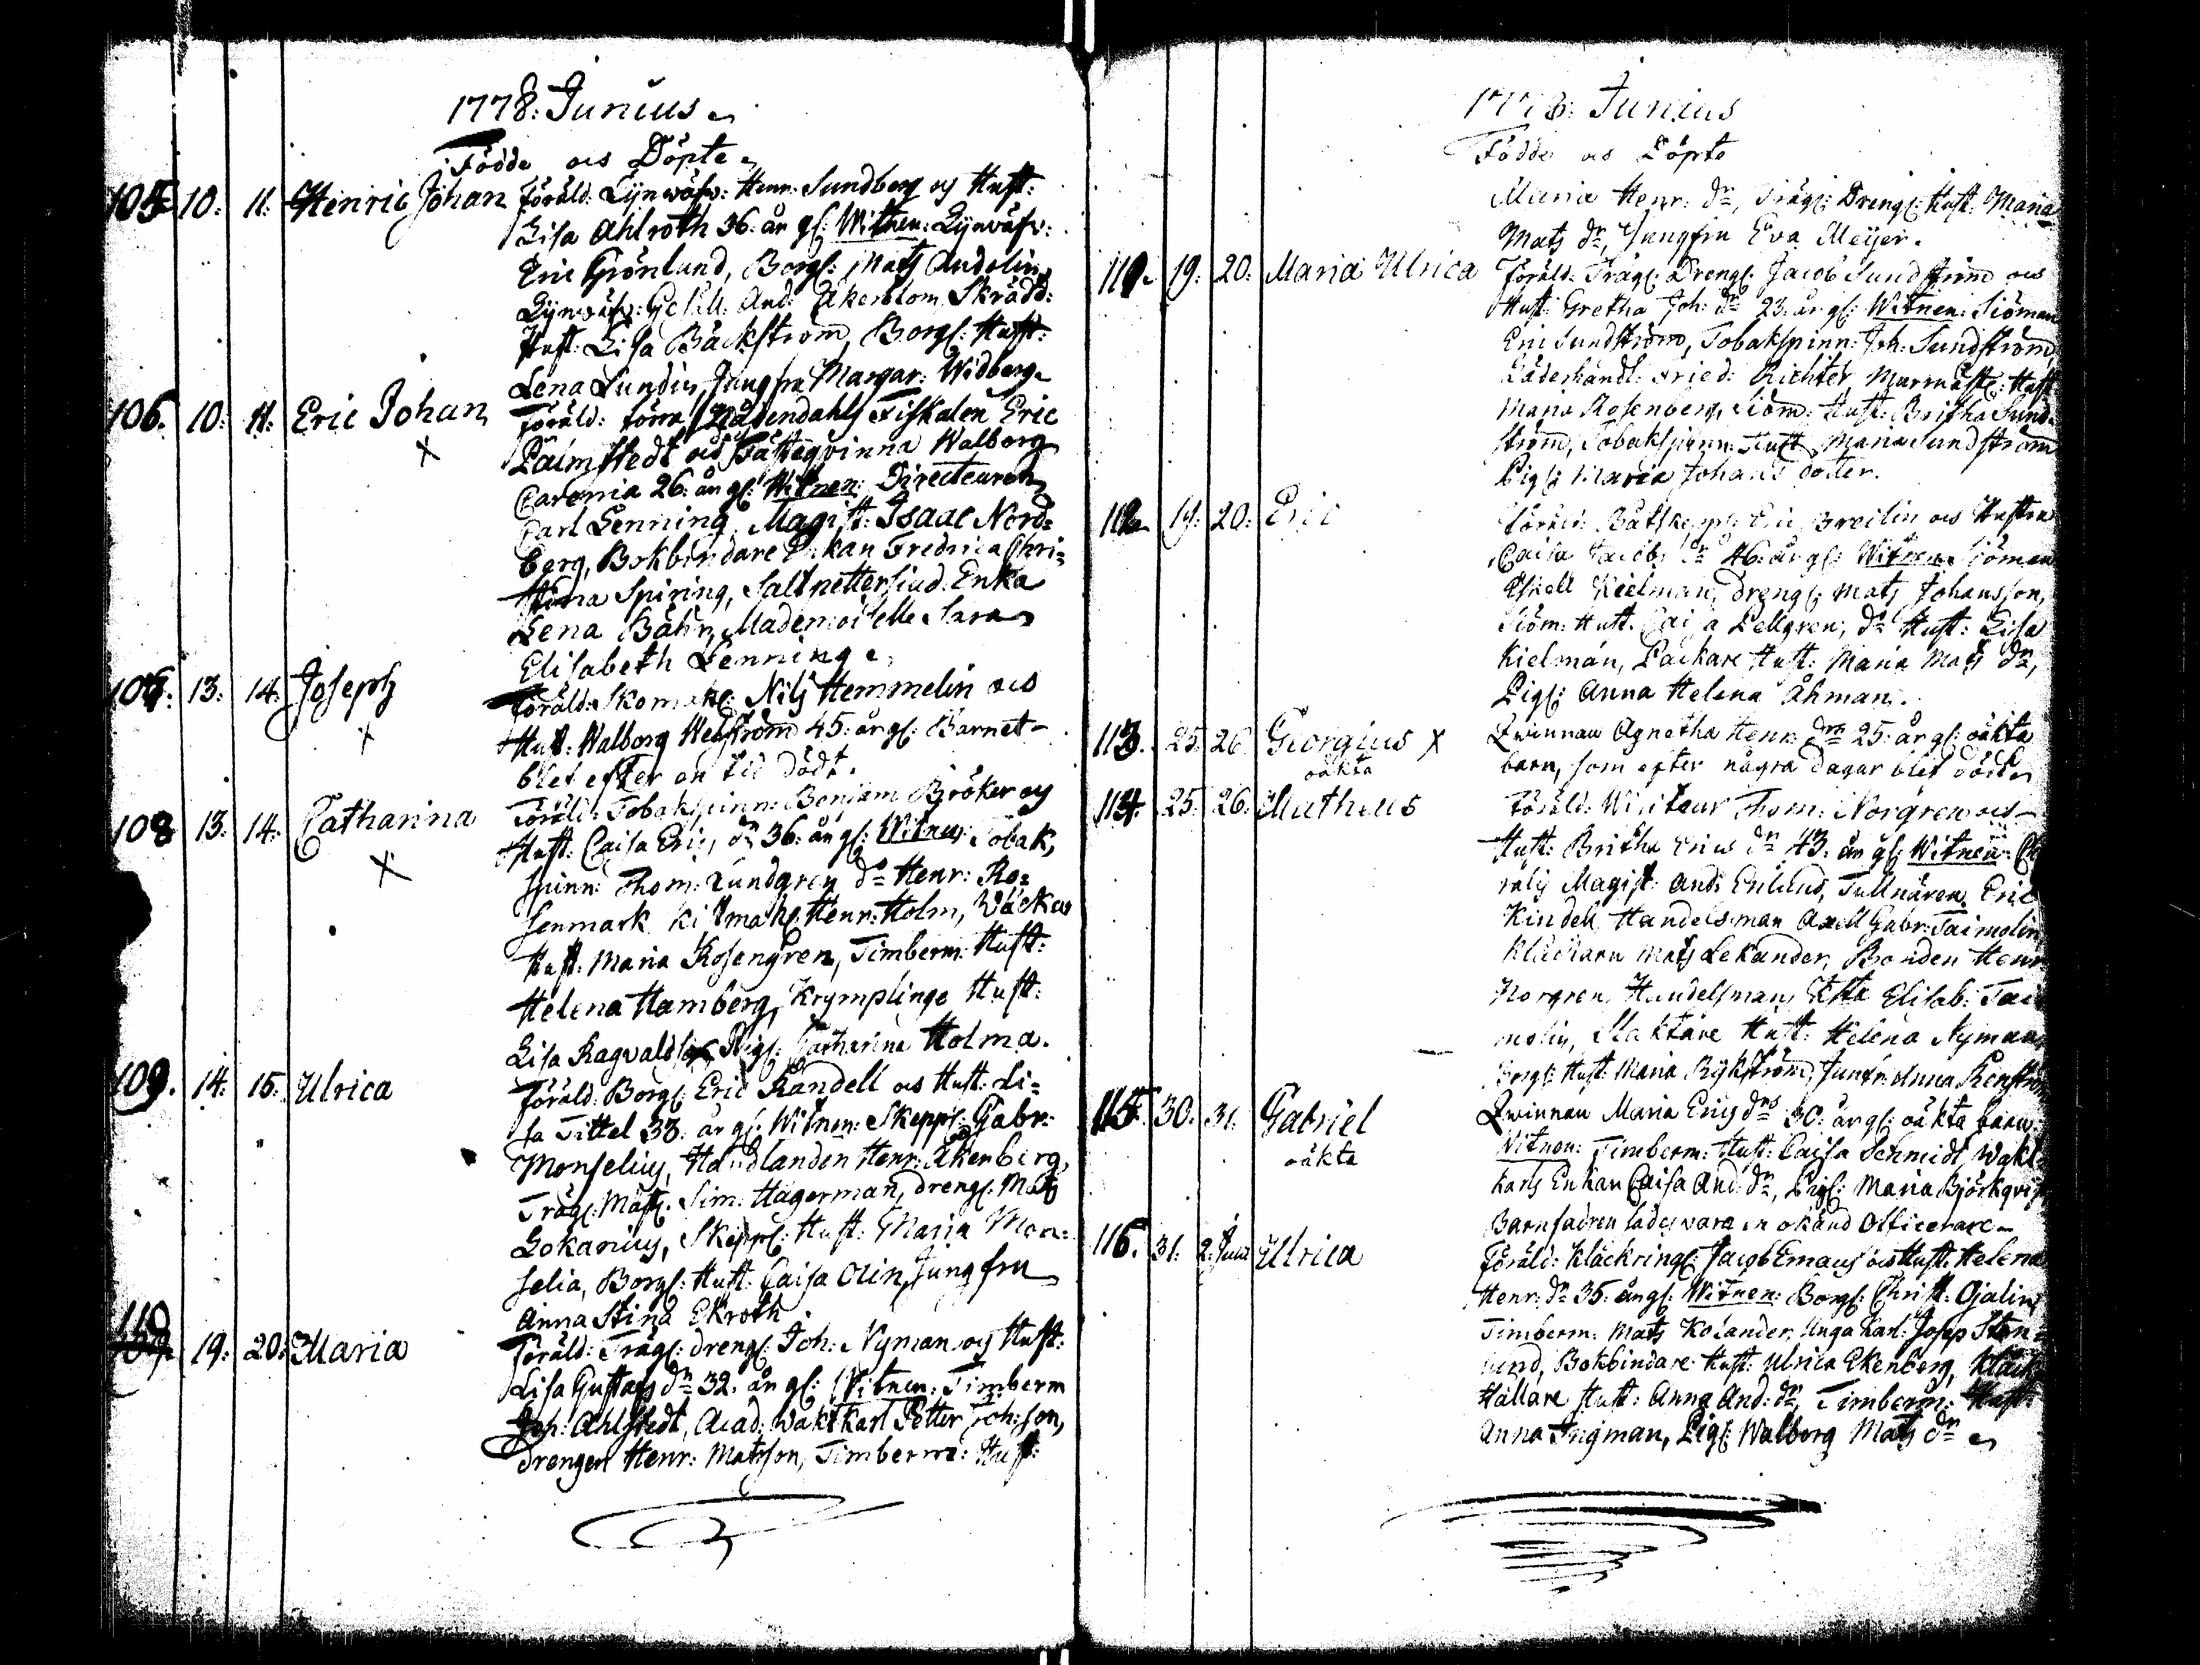 1778: Junius
Födde och Döpte
105. 10: 11: Henric Johan Föräld: Lijnwäfv: Henr: Sundberg och Hust:
Lisa Ahlroth 36: år gl: Witnen: Lijnwäfv:
Eric Grönlund, Borgl: Mats Andelin,
Lijnwäfv: Gesäll And: Åkerblom, Skrädd:
Hust: Lisa Bäckström, Borgl: Hust:
Lena Lundin, Jungfru Margar: Widberg
106. 10: 11: Eric Johan Föräld: förra Nådendahls Fiskalen Eric
x Palmstedt och Fästeqvinna Walborg
Caronia 26: år gl: Witnen: Directeuren
Carl Lenning, Magist: Isaac Nord=
berg, Bokbindare Enkan Fredrica Chri=
stina Spiring, Saltpettersiud. Enka
Lena Bähr, Mademoiselle Sara
Elisabeth Lenning
107. 13: 14: Joseph Föräld: Skomak: Nils Hemmelin och
x Hust: Walborg Welström 45: år gl: Barnet
blef efter en tid dödt.
108 13: 14: Catharina Föräld: Tobakspinn: Benjam Bröker och
x Hust: Caisa Erics dr 36: år gl: Witnen: Tobak,
spinn: Thom: Lundgren, do Henr: Ro=
senmark, Henr: Holm, Wäckar
Hust: Maria Rosengren, Timberm: Hust:
Helena Hamberg, Krymplinge Hust:
Lisa Ragvalds, Pigl: Catharina Holma.
109. 14: 15: Ulrica Föräld: Borgl: Eric Randell och Hust: Li=
sa Tittel 38: år gl: Witnen: Skepps: Gabr:
Monselius, Handlanden Henr: Åkerberg,
Trägl: Mäst: Sim: Hagerman, drengl: Mats
Lokanius, Skepps: Hust: Maria Mon=
selia, Borgl: Hust: Caisa Olin, Jungfru
Anna Stina Ekroth.
110 19: 20: Maria Föräld: Trägl: drengl: Joh: Nyman och Hust:
Lisa Gustafs dr 32: år gl: Witnen: Timberm
Joh: Ahlstedt, Acad: Waktkarl Petter Joh:son,
drengen Henr: Matsson, Timberm: Hust:
1778: Junius
Födde och Döpte
Maria Henr: dr, Trägl: Drengl: Hust: Maria
Mats dr, Jungfru Eva Meijer.
111. 19: 20: Maria Ulrica Föräld: Trägl: Drengl: Jacob Sundström och
Hust: Gretha Joh: dr 23: år gl: Witnen: Siöman
Eric Sundström, Tobakspinn: Joh: Sundström,
Läderhandl: Fried: Richter, Murmäst: Hust
Maria Rosenberg, Siöm: Hust: Britha Sund=
ström, Tobakspinn: Hust: Maria Sundström
Pigl: Maria Johans doter.
112. 19: 20: Eric Föräld: Båtskepp: Eric Breilin och Hustru
Caisa Jacobs dr 46: år gl: Witnen Siöman
Eskell Kielman, Drengl: Mats Johansson,
Siöm: Hust: Caisa Pellgren, do Hust: Lisa
Kielman, Packare Hust: Maria Mats dr,
Pigl: Anna Helena Åhman.
113. 25: 26: Georgius x Qwinnan Agnetha Henr: dr 25: år gl: oäkta
oäkta barn, som efter några dagar blef dödt
114. 25: 26: Matheus Föräld: Visiteur Thom: Norgren och
Hust: Britha Erics dr 43: år gl: Witnen:
Magist: And: Enlund, Tullnären Eric
Kindell, Handelsman Axell Gabr: Taimolin
Mats Lekander, Bonden Henr
Norgren, Handelsmans Elisab: Tai
molin, Slaktare Hust: Helena Nyman
Borgl: Hust: Maria Rykström, Junfr: Anna Renström
115. 30: 31: Gabriel Qwinnan Maria Erics drs 30: år gl: oäkta barn.
oäkta Witnen: Timberm: Hust: Caisa Schmidt, Wakt=
karls Enkan Caisa And: dr, Pigl: Maria Björkqvist
Barnfadren sades vara en okänd Officerare
116. 31: 2: Junii Ulrica Föräld: Kläckringl: Jacob Emaus och Hust: Helena
Henr: dr 35: år gl: Witnen: Borgl: Christ: Ojalin,
Timberm: Mats Kolander, Unga Karl: Josep Sten=
lund, Bokbindare Hust: Ulrica Ekenberg, Kläck
Hållare Hust: Anna And: dr, Timberm: Hust:
Anna Ingman, Pigl: Walborg Mats dr